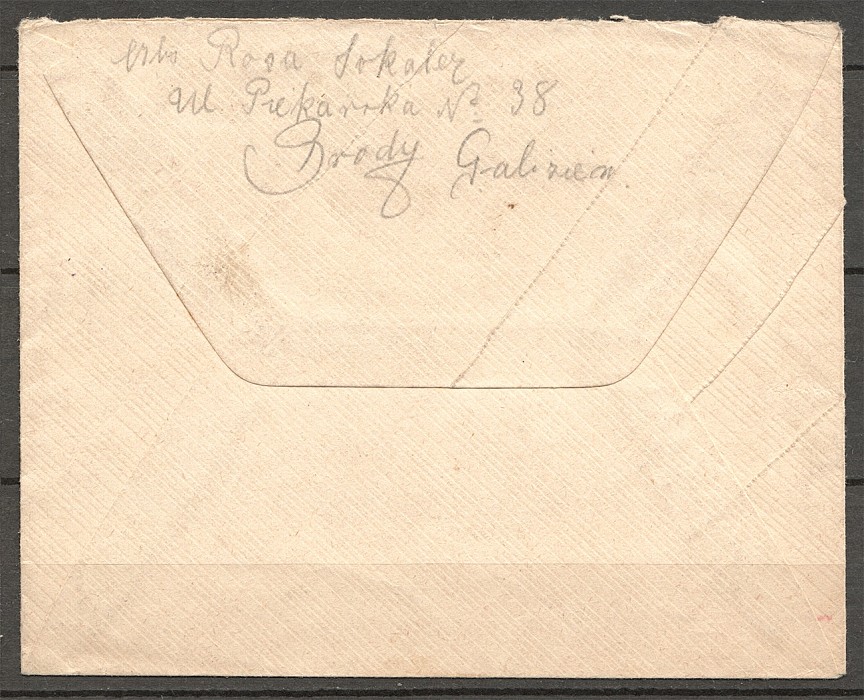 Rosa Sokaler
Ul. Piekarska № 38
Brody Galizien